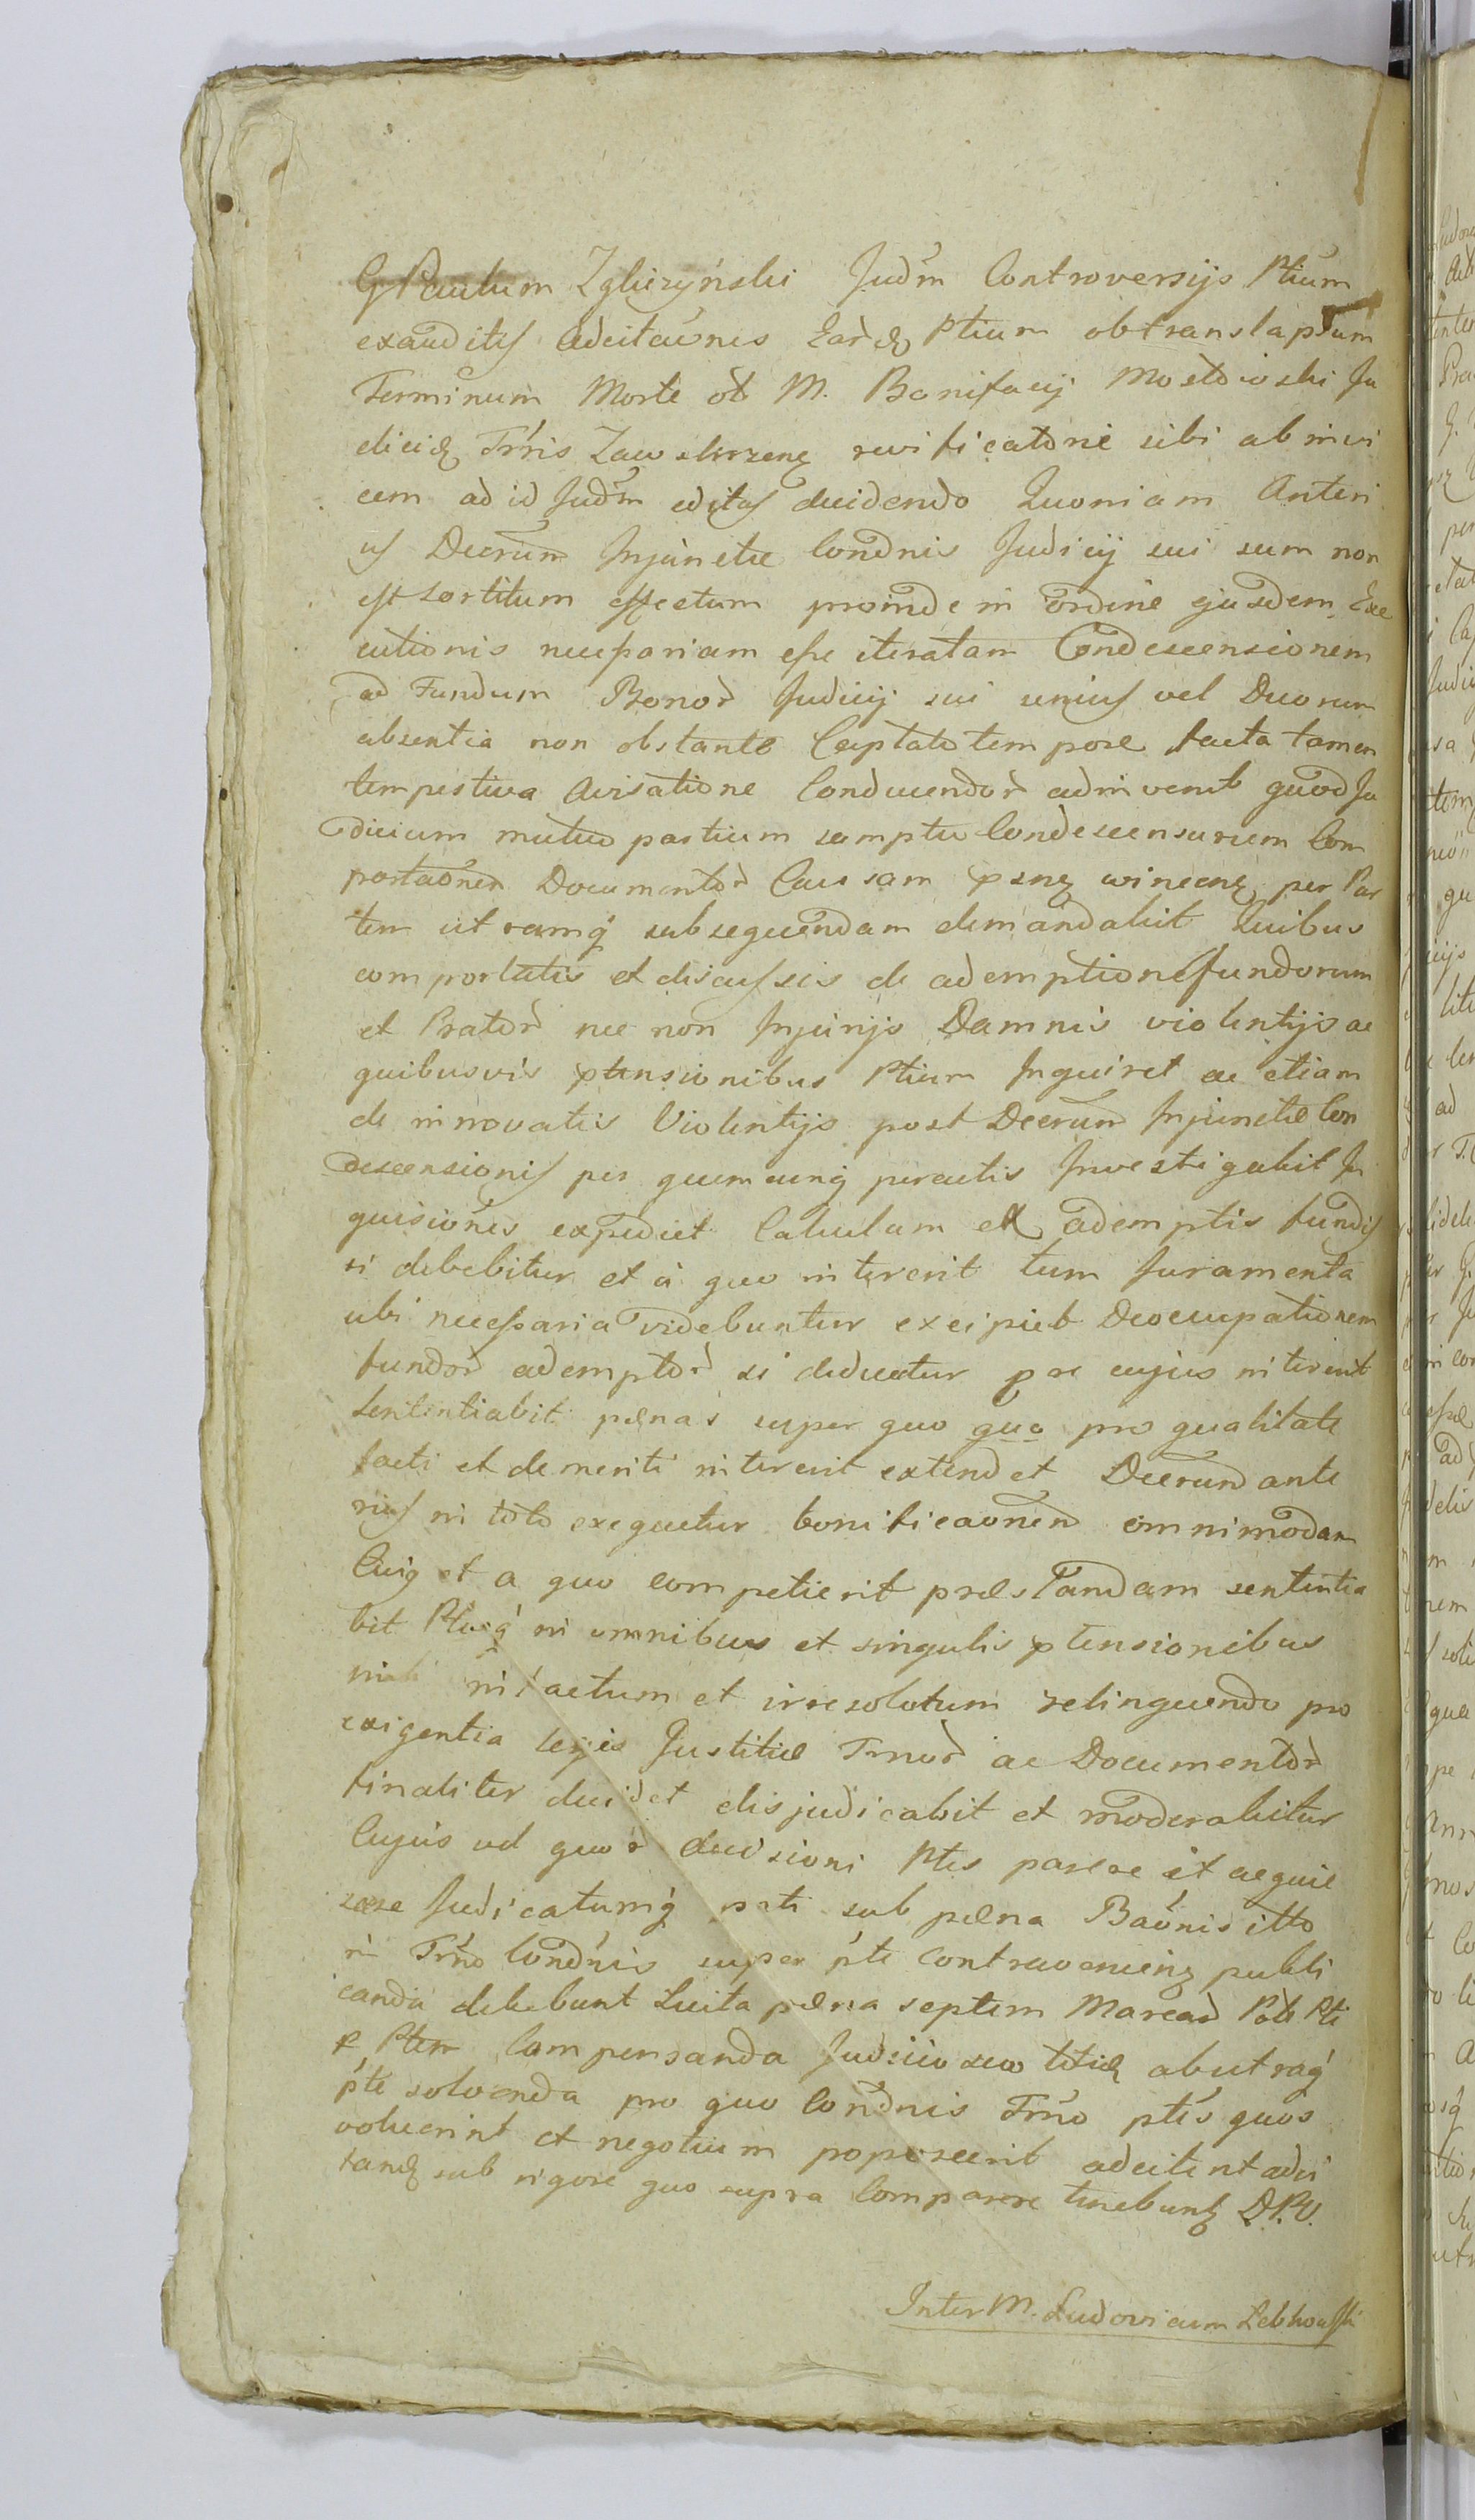 G Paulum Zgliczyński Judm Controversijs Ptium
exauditis adcitaónes Eard Ptium ob translapsum
Terminum Morte ol M. Bonifacij Mostowski Ju
dicis Trńis Zawskrzen revificatone sibi ab invi
cem ad id Judm editas decidendo Quoniam Anteri
us Decrum Injunctæ Condnis Judicij sui suum non
est sortitum effectum proinde in ordine ejusdem Exe
cutionis necessariam esse iteratam Condescensionem
ad Fundum Bonor Judicij sui unius vel Duorum
absentia non obstante Captato tempore facta tamen
tempestiva Avisatione Conducendor adinvenit quod Ju
dicium mutuo partium sumptu Condescensurum Com
portaonen Documentor Caussam pzn concnen per Par
tem utramq subsequendam demandabit Quibus
comportatis et discussis de ademptione fundorum
et Prator nec non Injurijs Damnis violentijs ac
quibusvis ptensionibus Ptium Inquiret ac etiam
de innovatis Violentijs post Decrum Injunctæ Con
descensionis per quemcunq peractis Investigabit In
quisiones expediet Calculum ex ademptis fundis
si debebitur et à quo intererit tum Juramenta
ubi necessaria videbuntur excipiet Deoccupationem
fundor ademptor si deducatur pro cujus intererit
sententiabit pænas super quo qua pro qualitate
facti et demeriti intererit extendet Decrum ante
rius in toto exequetur bonificaonem omnimodam
Cuiq et a quo competierit præstandam sententia
bit Ptesq in omnibus et singulis ptensionibus
nil intactum et irresolutum relinquendo pro
exigentia Legis Justitiæ Trnor ac Documentor
finaliter decidet disjudicabit et moderabitur
Cujus vd quor decisioni Ptes parere et acquie
scere Judicatumq pati sub pæna Baónis itto
in Trńo Condńis super pte contraveniens publi
canda debebunt Luita pæna septem Marcar Pote Pti
p Ptem Compensanda Judicio suo titid ab utraq
pte solvenda pro quo Condnis Trńo ptes quos
voluerint et negotium poposcerit adcitent adci
tand sub rigore quo supra Comparere tenebunt D.P.V.
Inter M. Ludovicum Lebkowski